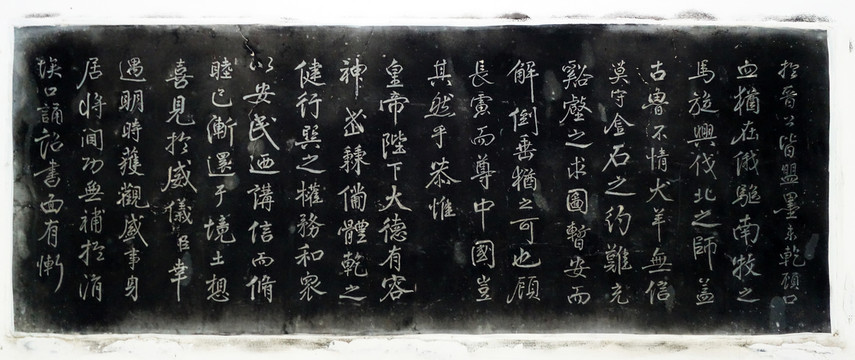 於晉公皆盟墨未乾顧口
血猶在俄驅南牧之
馬旋興伐北之師蓋
古魯不情犬羊無信
莫守金石之約難充
谿壑之求圖暫安而
解倒垂猶之可也顧
長慮而尊中國豈
其然乎恭惟
皇帝陛下大德有容
神武 體乾之
健行巽之權務和衆
以安民迺講信而脩
睦已漸還于境土想
喜見於威儀臣幸
遇明時獲觀盛事身
居將閫功無補於涓
埃口誦詔書面有慚